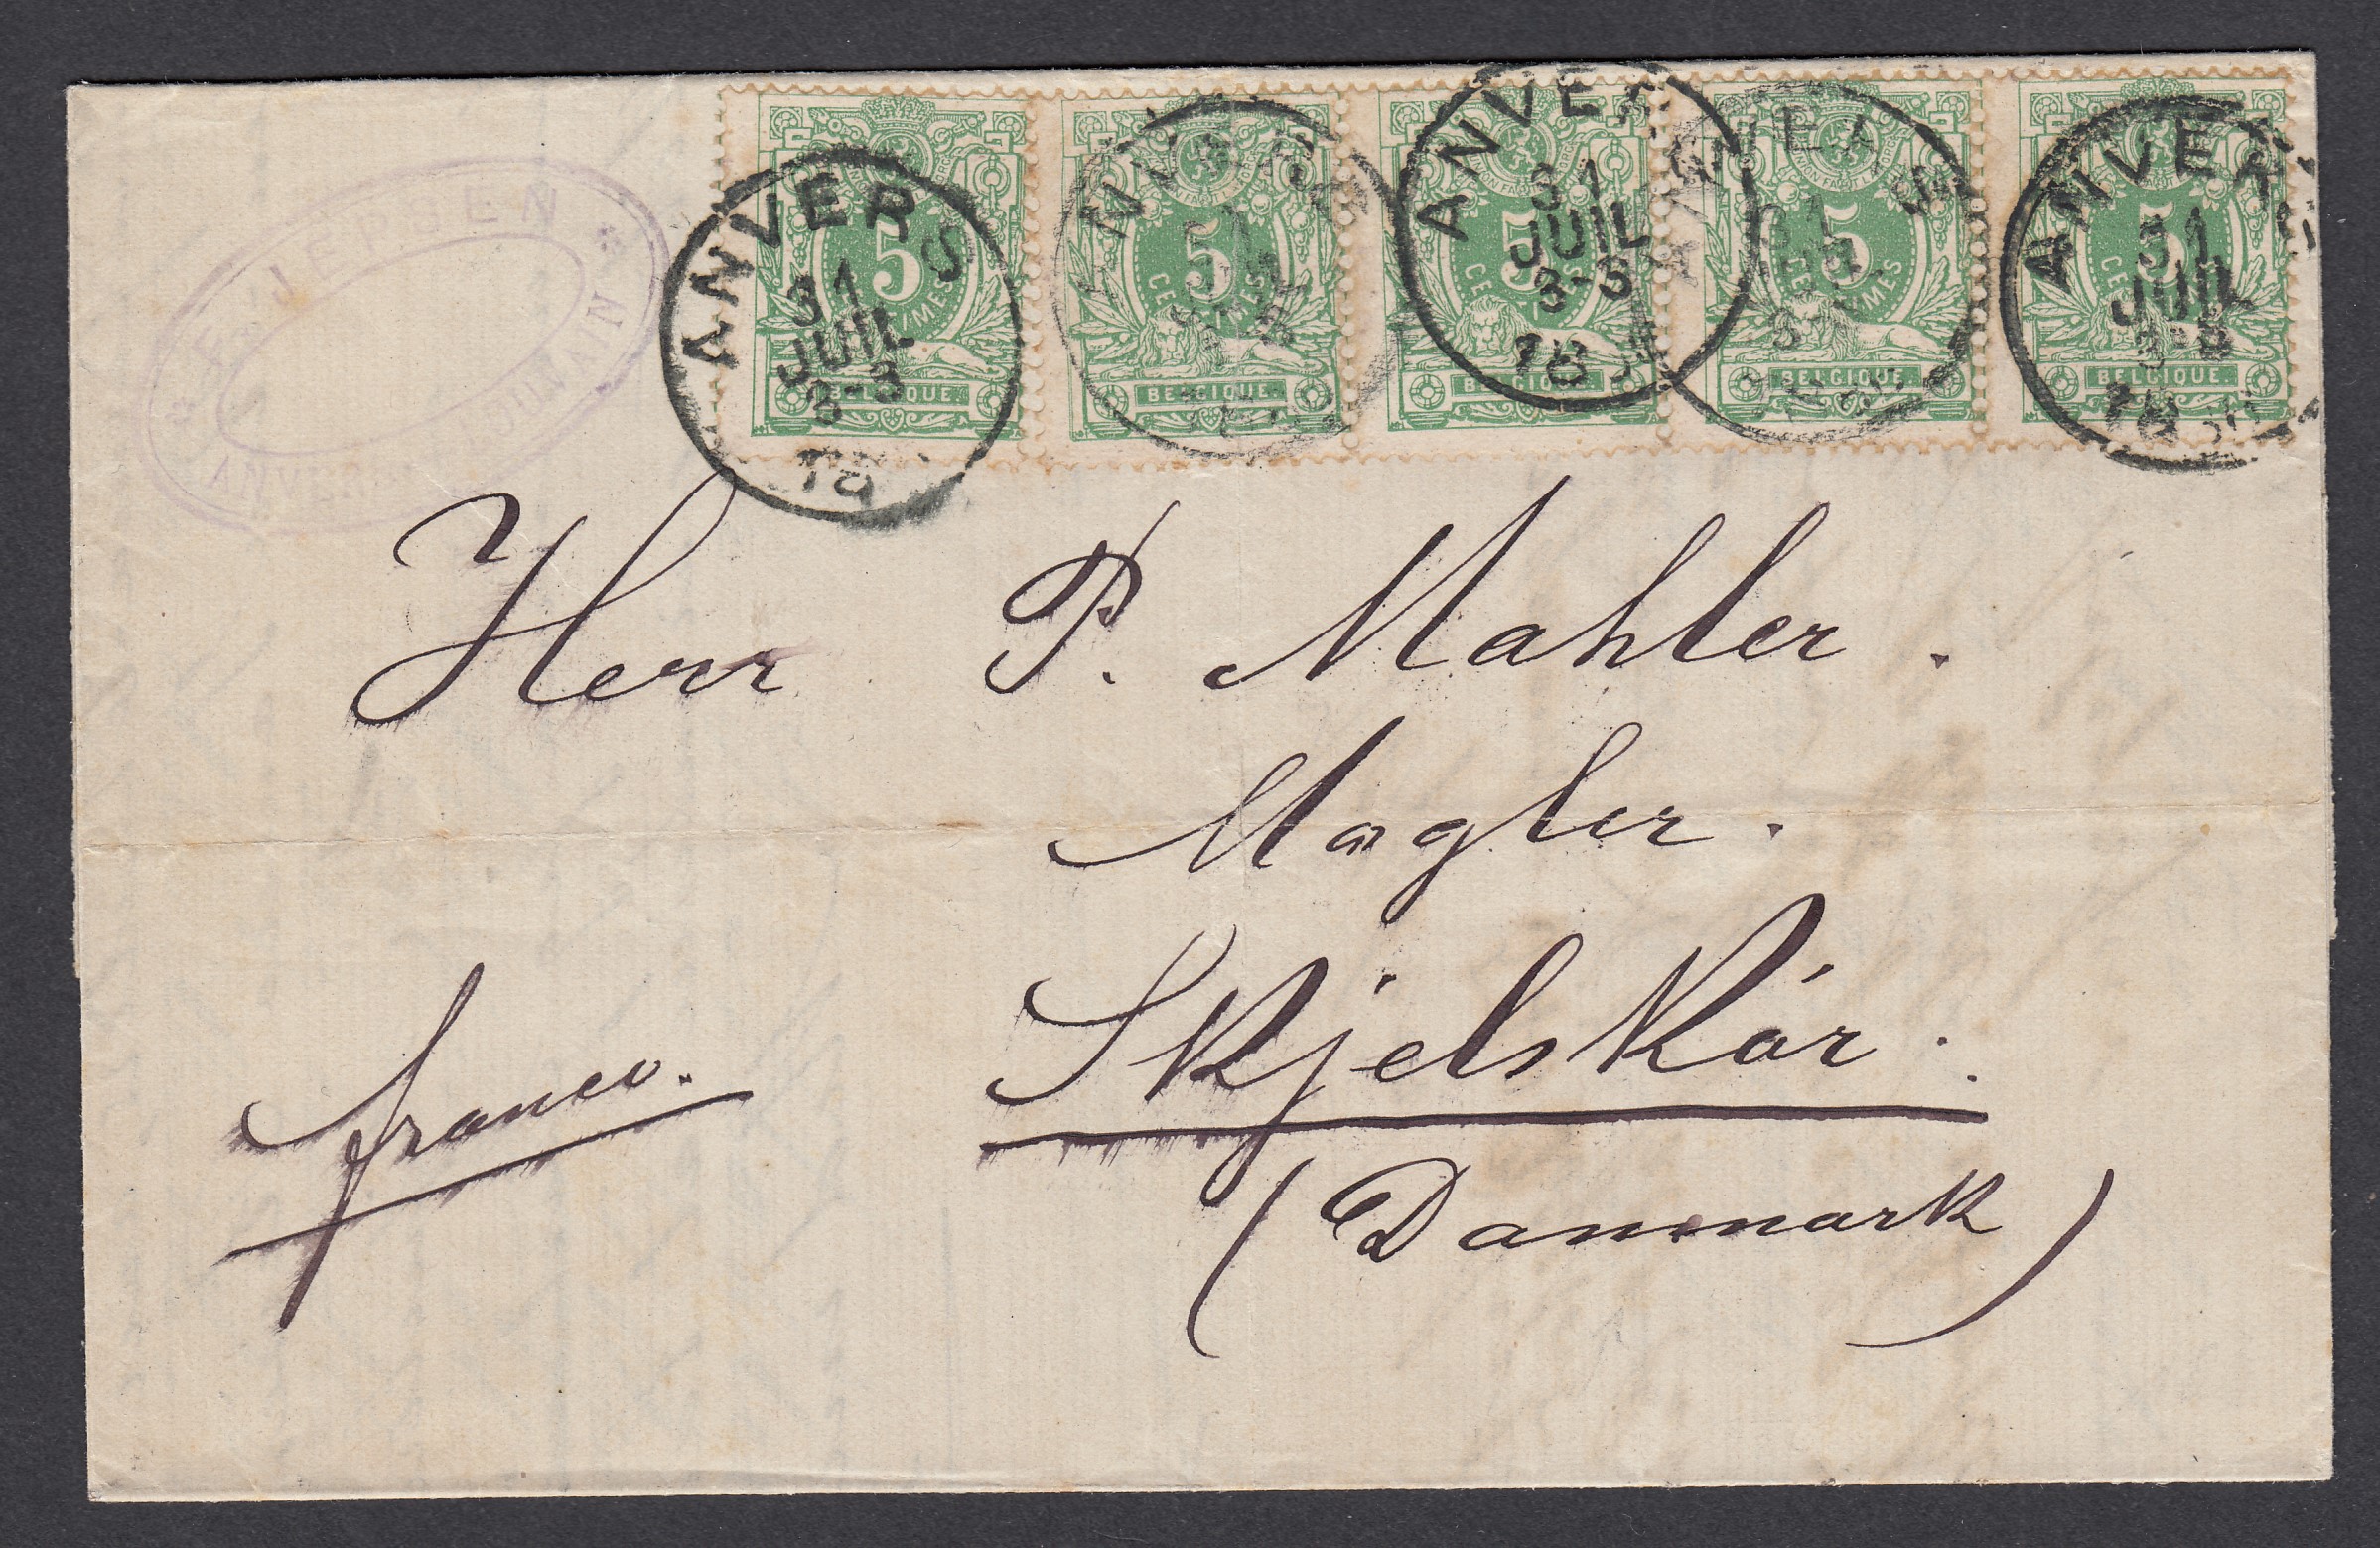 JEPPSEN
ANVERS
5
CENTIMES
BELGIQUE.
ANVERS
31
JUIL
3-3
78
5
CENTIMES
BELGIQUE.
ANVERS
5
CENTIMES
BELGIQUE.
ANVERS
31
JUIL
3-3
18
5
CENTIMES
BELGIQUE.
5
CENTIMES
BELGIQUE.
ANVERS
31
JUIL
3-3
18
Herr P. Mahler.
Mægler.
Skjelskör.
franco.
(Danmark)